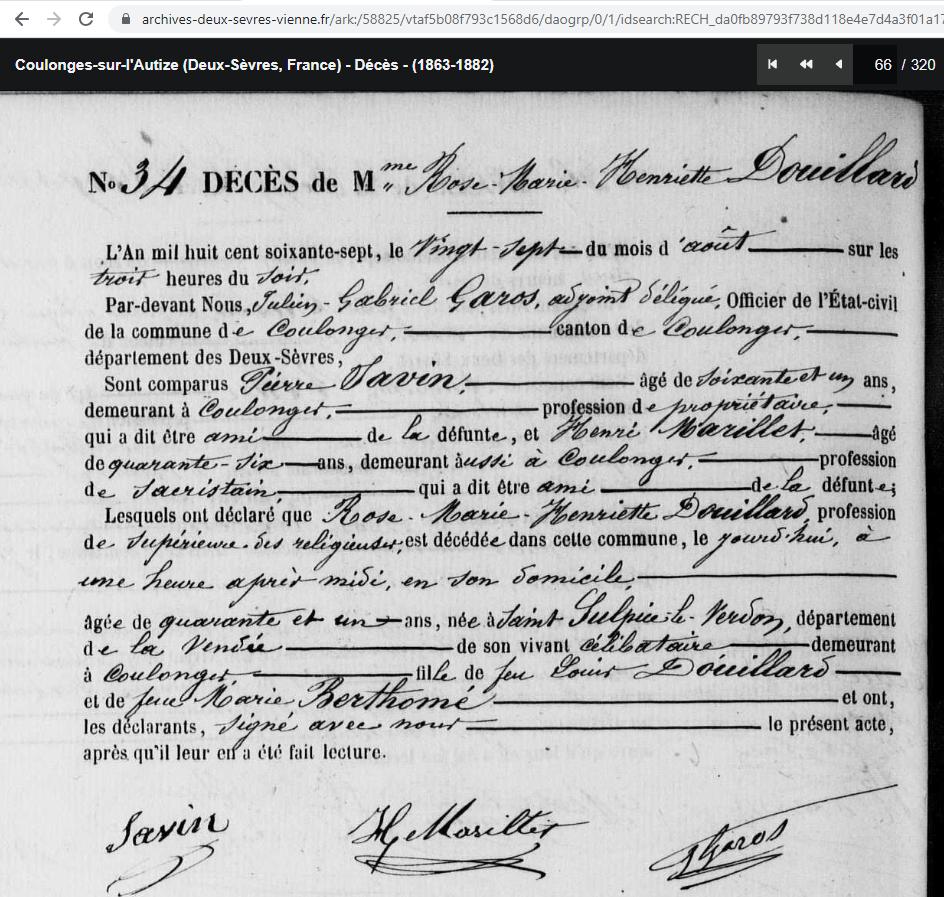 archives-deux-sevres-vienne.fr/ark:/58825/vtaf5b08f793c1568d6/daogrp/0/1/idsearch:RECH_da0fb89793f738d118e4e7d4a3f01a17
Coulonges-sur-l'Autize (Deux-Sèvres, France) - Décès - (1863-1882)
66 / 320
No. 34 DÉCÈS de Mme Rose-Marie-Henriette Douillard
L'An mil huit cent soixante-sept, le Vingt-Sept du mois d'août sur les
trois heures du soir,
Par-devant Nous, Julien-Gabriel Garos, adjoint délégué, Officier de l'État-civil
de la commune de Coulonges, canton de Coulonges,
département des Deux-Sèvres,
Sont comparus Pierre Savin, âgé de soixante et un ans,
demeurant à Coulonges, profession de propriétaire,
qui a dit être ami de la défunte, et Henri Marillet, âgé
de quarante-six ans, demeurant aussi à Coulonges, profession
de sacristain, qui a dit être ami de la défunte;
Lesquels ont déclaré que Rose-Marie-Henriette Douillard, profession
de Supérieure des religieuses, est décédée dans cette commune, le jourd'hui, à
une heure après midi, en son domicile,
âgée de quarante et un ans, née à Saint Sulpice-le-Verdon, département
de la Vendée de son vivant célibataire demeurant
à Coulonges, fille de feu Louis Douillard
et de feue Marie Berthomé et ont,
les déclarants, signé avec nous le présent acte,
après qu'il leur en a été fait lecture.
Savin H Marillet JGaros